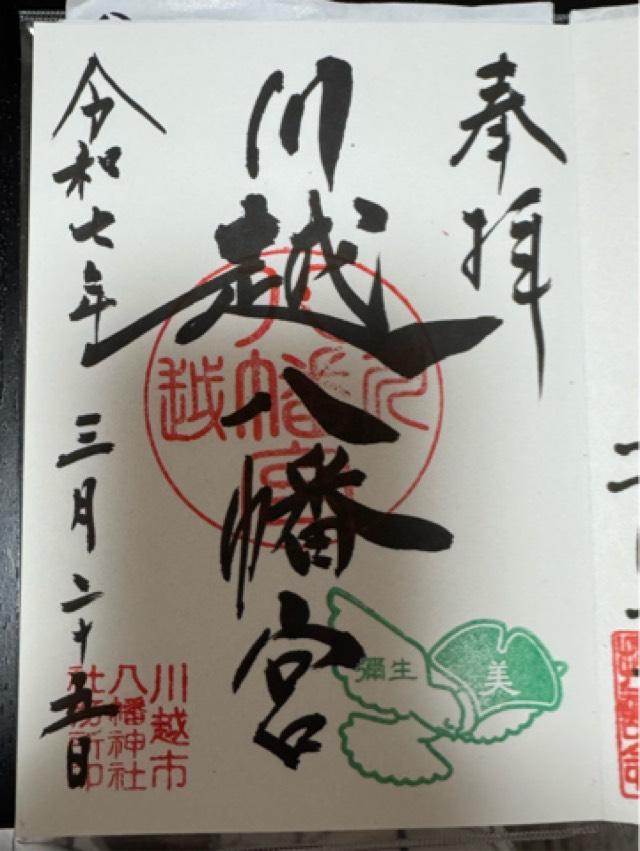 奉拝
川越八幡宮
令和七年 三月二十五日
川越
八幡宮
彌生
美
川越市
八幡神社
社務所印